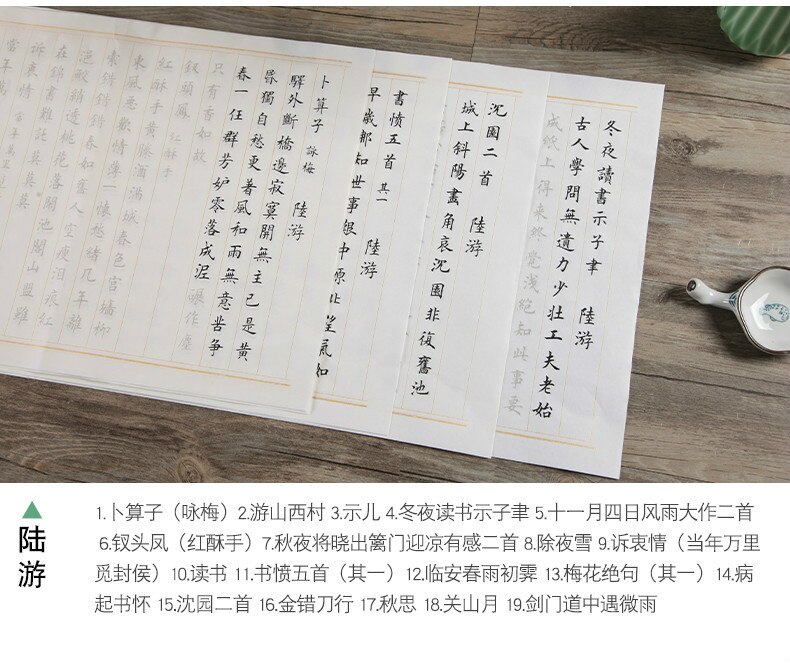 冬夜讀書示子聿 陸游
古人學問無遺力少壯工夫老始
成紙上得来終覺淺絕知此事要
沉園二首 陸游
城上斜陽畫角哀沉園非復舊池
書愤五首 其一 陸游
早歲那知世事艱中原北望氣如
卜算子 詠梅 陸游
驛外斷橋邊寂寞開無主已是黄
昏獨自愁更著風和雨無意苦爭
春一任群芳妒零落成泥碾作塵
只有香如故
釵頭鳳 红酥手
紅酥手黄縢酒滿城春色宮墻柳
東風惡歡情薄一懷愁緒几年離
索錯錯錯春如舊人空瘦泪痕红
浥鮫綃透桃花落閑池閣山盟雖
在錦書難託莫莫莫
訴衷情 當年萬里
當年萬
▲
陆游
1.卜算子（咏梅）2.游山西村 3.示儿 4.冬夜读书示子聿 5.十一月四日风雨大作二首
6.钗头凤（红酥手）7.秋夜将晓出篱门迎凉有感二首 8.除夜雪 9.诉衷情（当年万里
觅封侯）10.读书 11.书愤五首（其一）12.临安春雨初霁 13.梅花绝句（其一）14.病
起书怀 15.沈园二首 16.金错刀行 17.秋思 18.关山月 19.剑门道中遇微雨